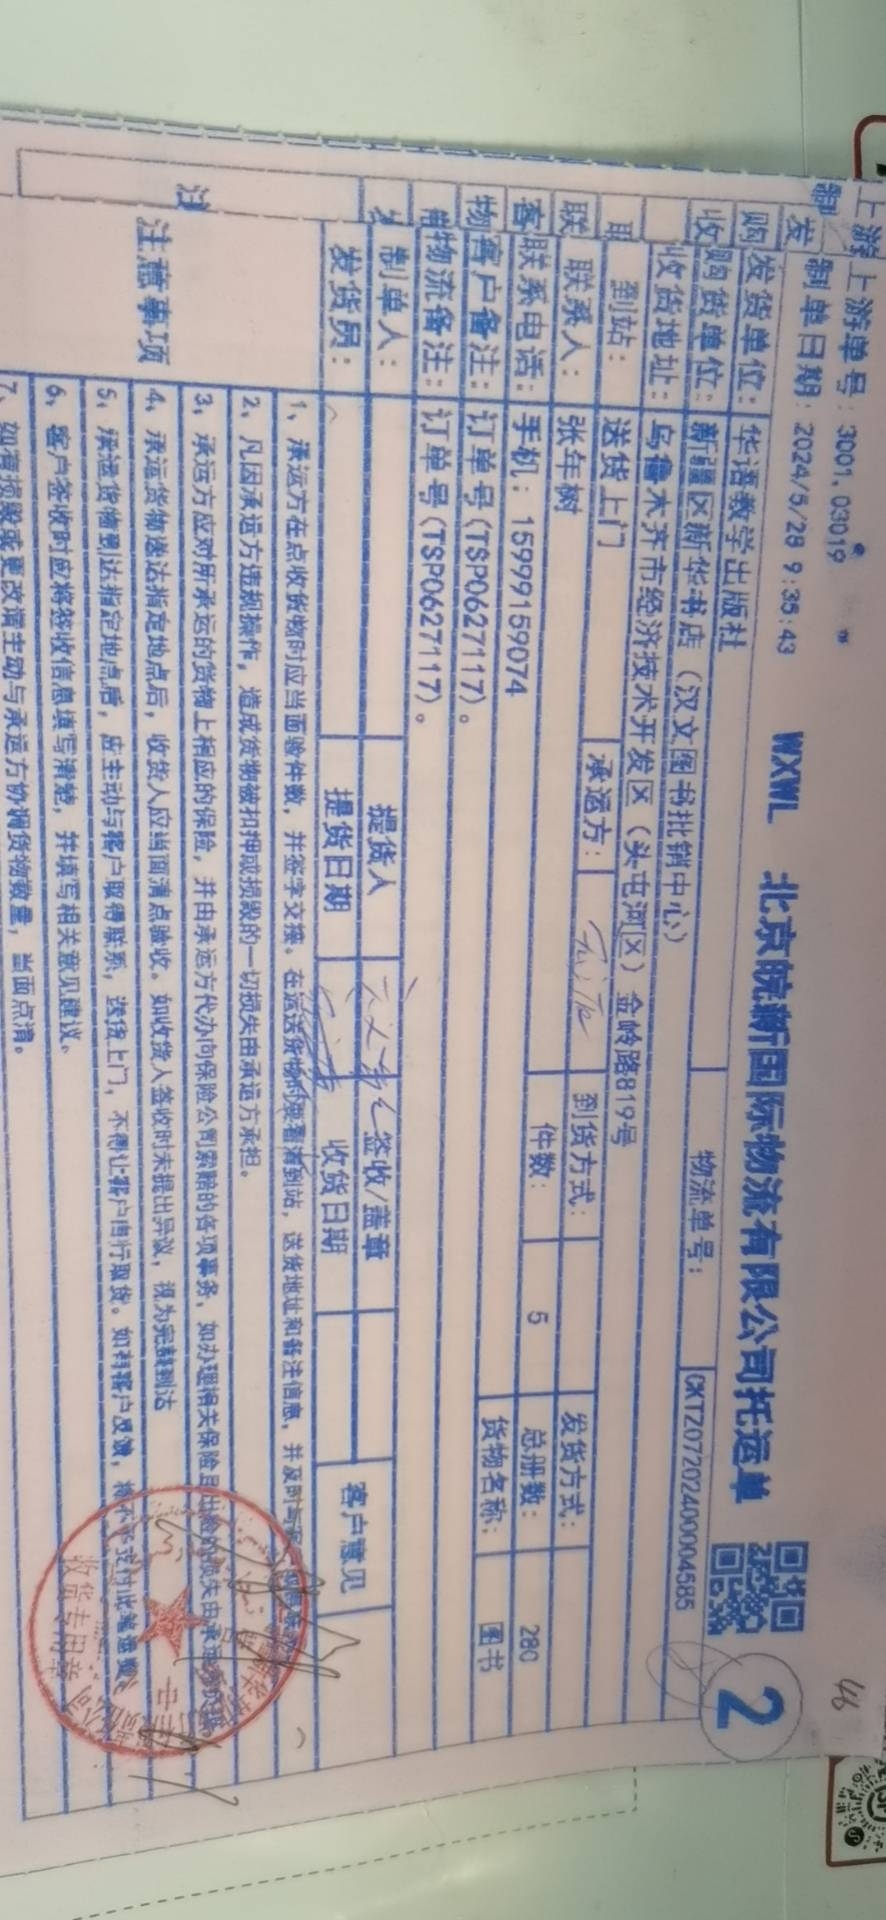 上游单号：3001.03019
46
制单日期：2024/5/28 9:35:43
WXWL 北京皖新国际物流有限公司托运单
2
发货单位：华语教学出版社
购货单位：新疆区新华书店（汉文图书批销中心）
物流单号：
CKTZ07202400004585
收货地址：乌鲁木齐市经济技术开发区（头屯河区）金岭路819号
到站：
送货上门
承运方：
到货方式：
发货方式：
联系人：
张年树
件数：
5
总册数：
280
联系电话：
手机：15999159074
货物名称：
图书
客户备注：
订单号(TSP0627117)。
物流备注：
订单号(TSP0627117)。
制单人：
提货人
签收/盖章
客户意见
发货员：
提货日期
收货日期
注意事项
1、承运方在点收货物时应当面验件数，并签字交接。在运送货物时要看清到站，送货地址和备注信息，并及时与
2、凡因承运方违规操作，造成货物被扣押或损毁的一切损失由承运方承担。
3、承运方应对所承运的货物上相应的保险，并由承运方代办向保险公司索赔的各项事务，如办理相关保险且出险的损失由承运方
4、承运货物送达指定地点后，收货人应当面清点验收。如收货人签收时未提出异议，视为完整到达
5、承运货物到达指定地点后，应主动与客户取得联系，送货上门，不得让客户自行取货。如有客户反馈，将不予支付此笔运费
6、客户签收时应将签收信息填写清楚，并填写相关意见建议。
7、如有损毁或更改请主动与承运方协调货物数量，当面点清。
收货专用章